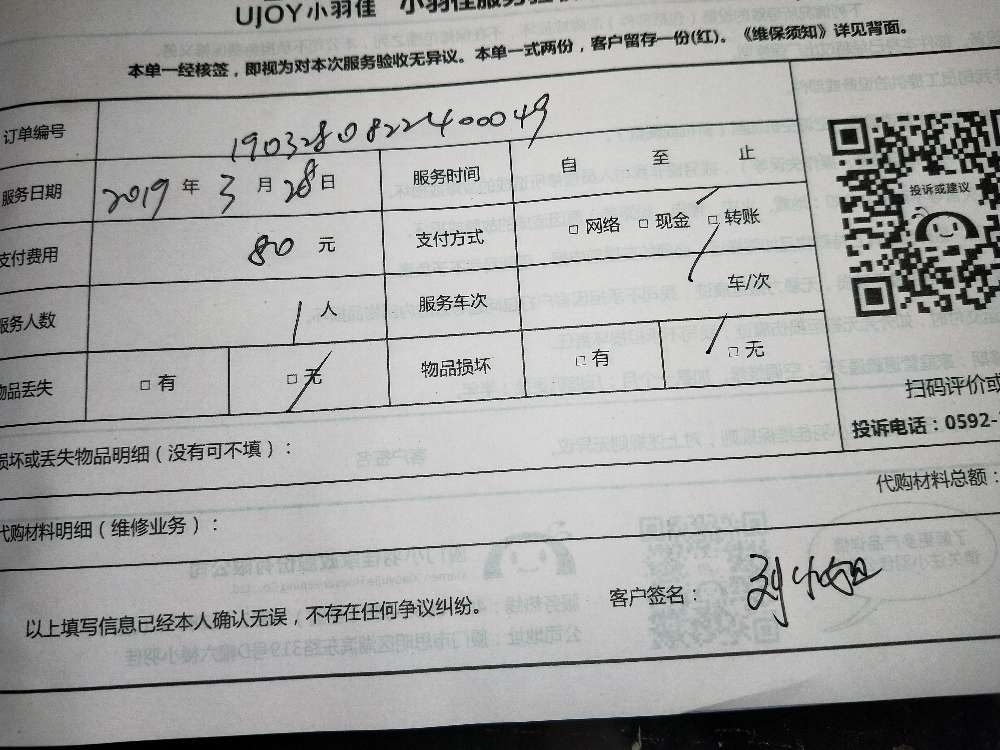 UJOY小羽佳 小羽佳服务验
本单一经核签，即视为对本次服务验收无异议。本单一式两份，客户留存一份(红)。《维保须知》详见背面。
订单编号 190328082240049
服务日期 2019 年 3 月 28 日 服务时间 自 至 止
支付费用 80 元 支付方式 □ 网络 □ 现金 □ 转账
服务人数 1 人 服务车次 / 车/次
物品丢失 □ 有 □ 无 物品损坏 □ 有 □ 无
损坏或丢失物品明细（没有可不填）：
代购材料明细（维修业务）：
代购材料总额：
以上填写信息已经本人确认无误，不存在任何争议纠纷。
客户签名： 刘小姐
投诉或建议
扫码评价或
投诉电话：0592-